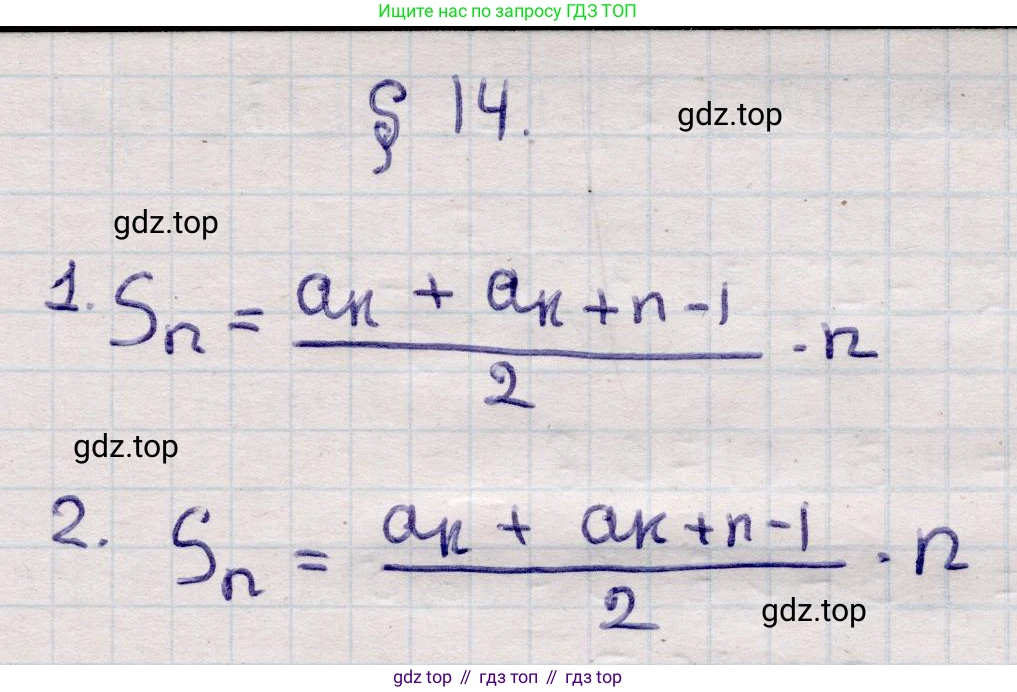 Ищите нас по запросу ГДЗ ТОП
§ 14.
gdz.top
gdz.top
1. Sₙ = (aₖ + aₖ₊ₙ₋₁)/2 · n
gdz.top
2. Sₙ = (aₖ + aₖ₊ₙ₋₁)/2 · n
gdz.top
gdz.top // гдз топ // гдз top